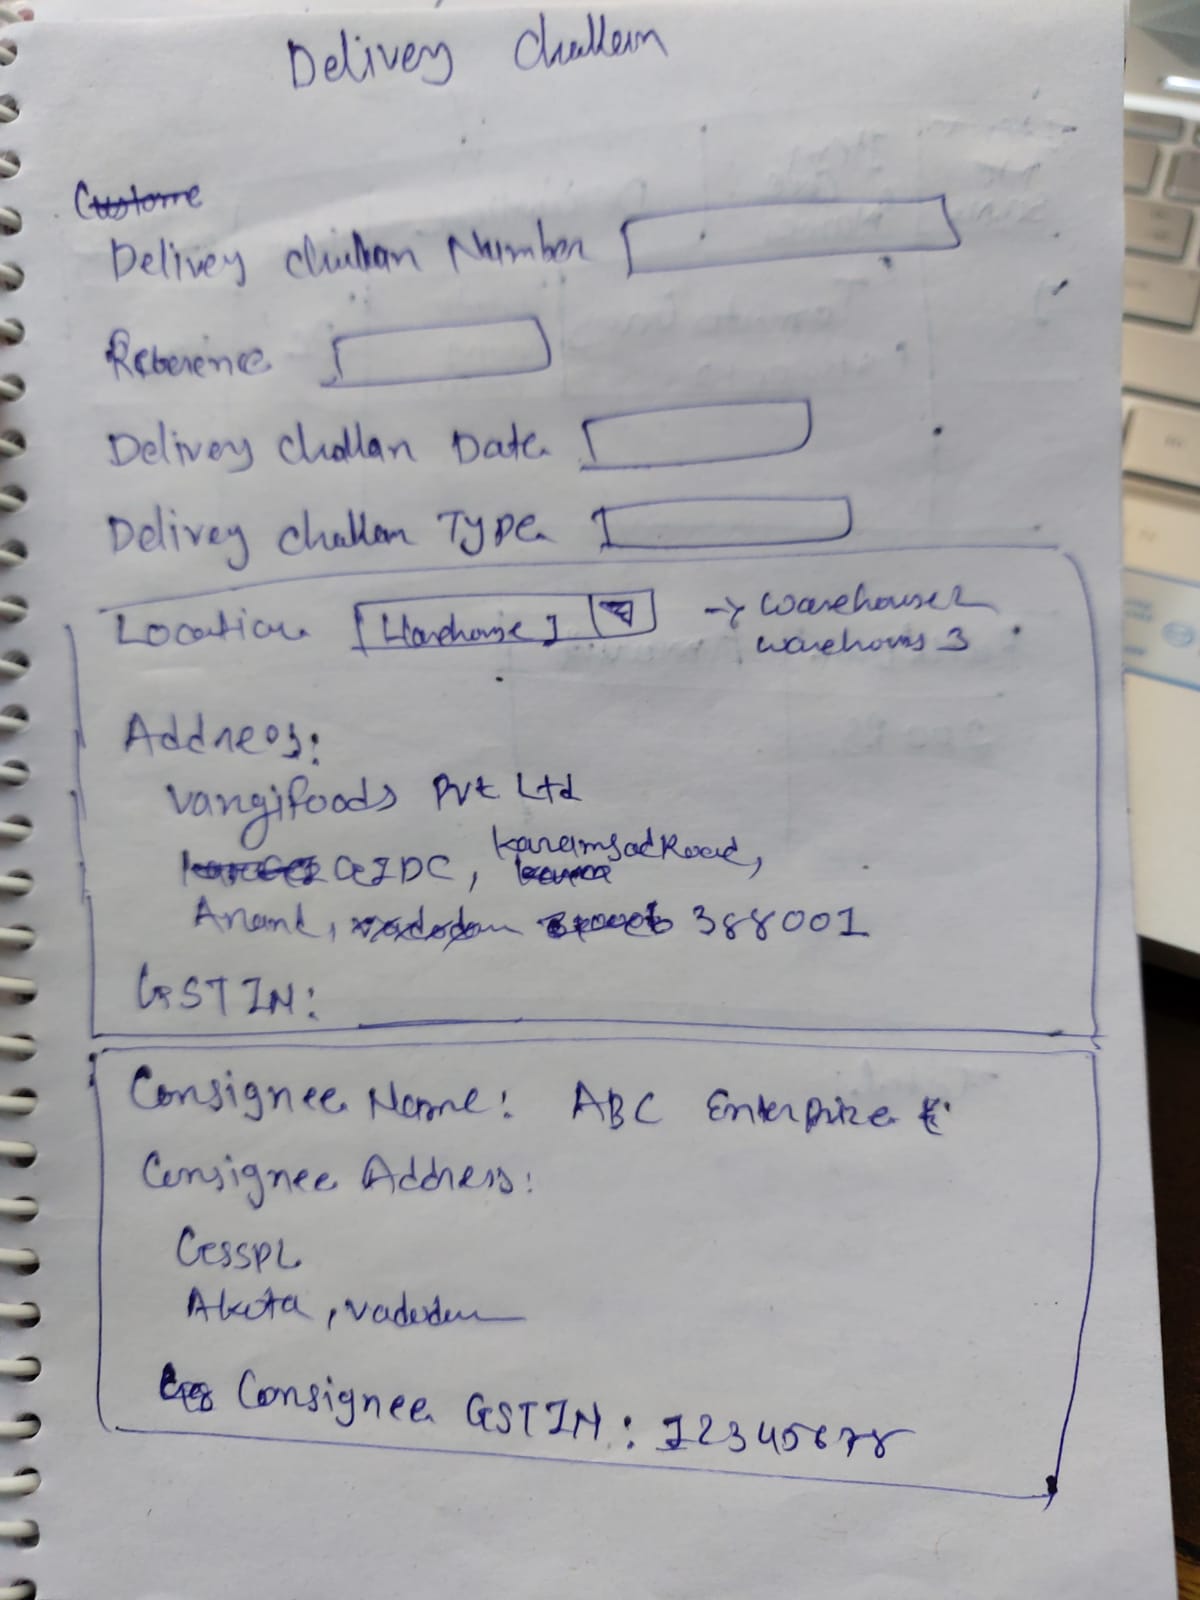 Delivey challan
Custome
Delivey challan Number
Reference
Delivey challan Date
Delivey challan Type
Location [Warehouse 1] → warehouse 2
warehous 3
Address:
Vangifoods Pvt Ltd
GIDC, Karamsad Road,
Anand, 388001
GSTIN:
Consignee Name: ABC Enterprize
Consignee Address:
GSSPL
Akota, vadodara
Consignee GSTIN: 12345678